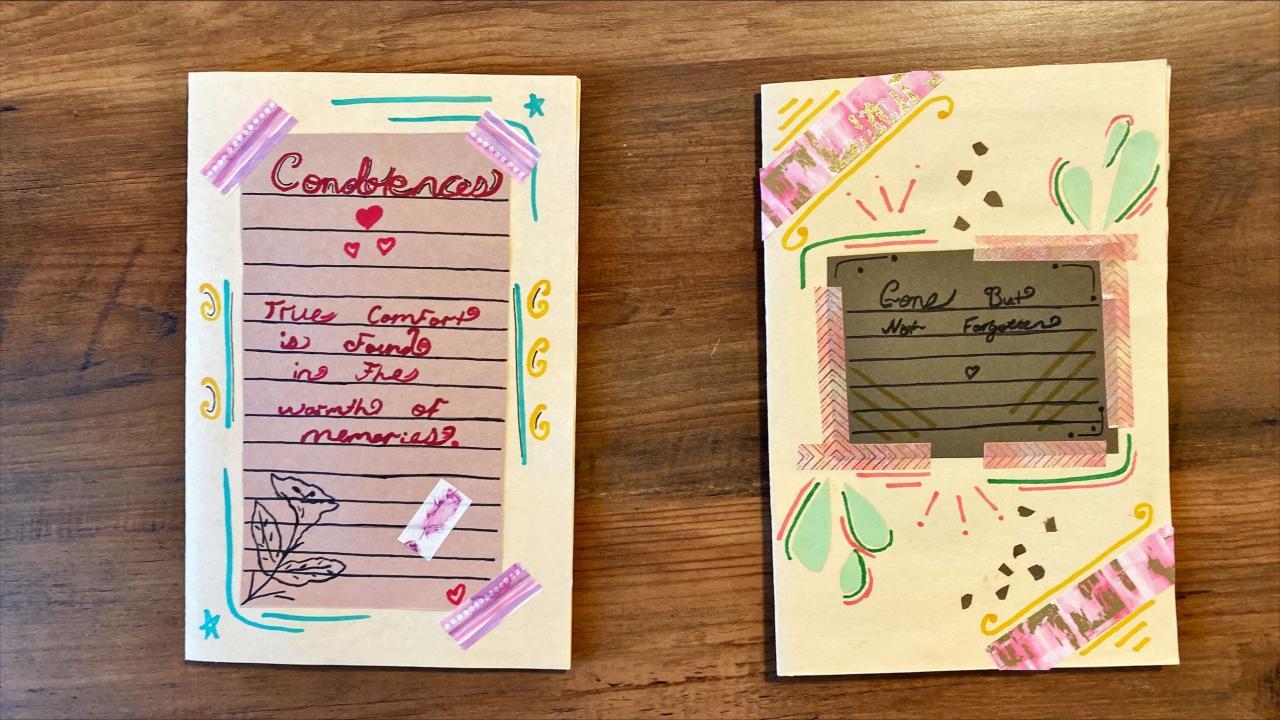 Condolences
True Comfort
is Found
in The
warmth of
memories.
Gone But
Not Forgotten